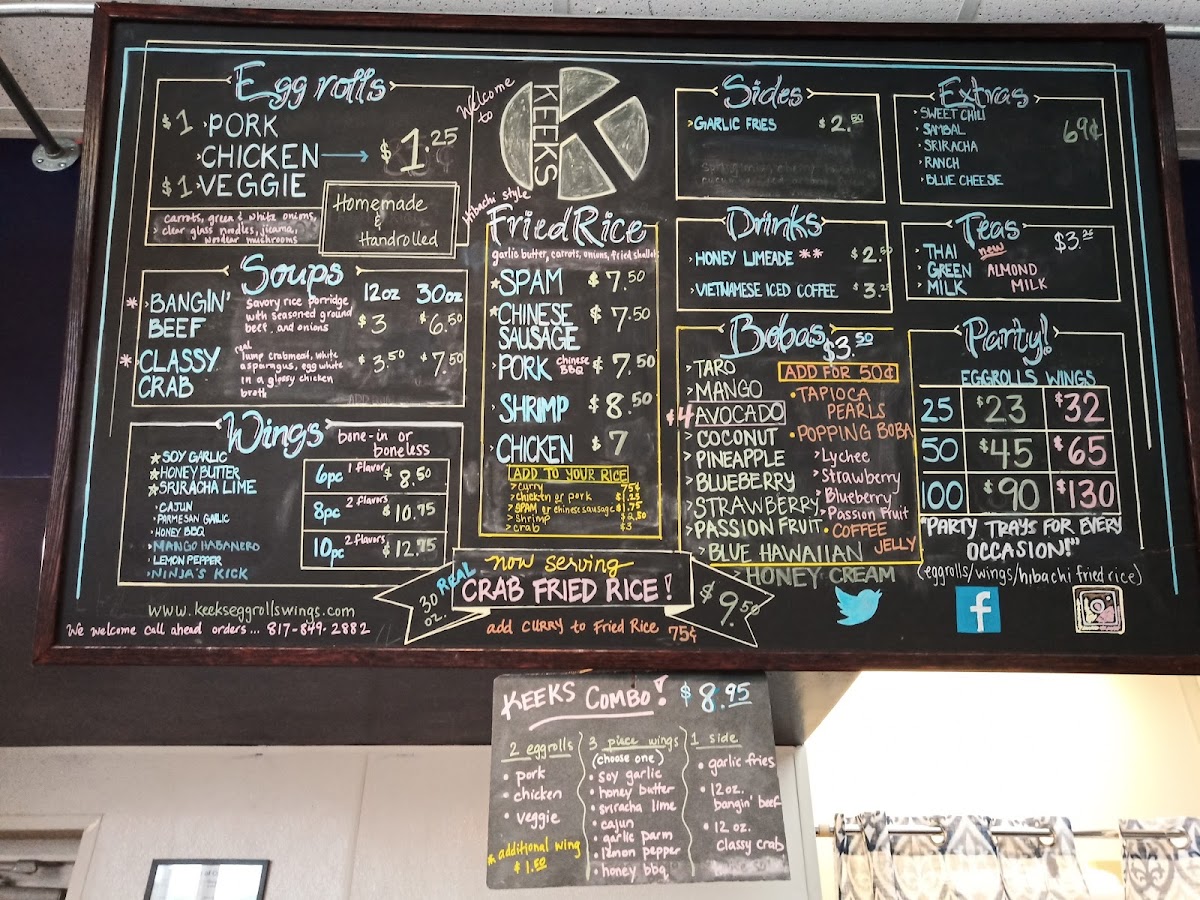 Egg rolls
$1 PORK
CHICKEN → $1.25
$1 VEGGIE
carrots, green & white onions,
clear glass noodles, jicama,
woodear mushrooms
Homemade
&
Handrolled
Soups
12oz 30oz
* BANGIN' BEEF
Savory rice porridge
with seasoned ground
beef, and onions
$3 $6.50
* CLASSY CRAB
real
lump crabmeat, white
asparagus, egg white
in a glossy chicken
broth
$3.50 $7.50
Wings
bone-in or
boneless
SOY GARLIC
HONEY BUTTER
SRIRACHA LIME
CAJUN
PARMESAN GARLIC
HONEY BBQ
MANGO HABANERO
LEMON PEPPER
NINJA'S KICK
6pc 1 flavor $8.50
8pc 2 flavors $10.75
10pc 2 flavors $12.75
www.keekseggrollswings.com
We welcome call ahead orders... 817-849-2882
Welcome to
KEEKS
K
Hibachi style
Fried Rice
garlic butter, carrots, onions, fried shallot
SPAM $7.50
CHINESE SAUSAGE $7.50
PORK chinese BBQ $7.50
SHRIMP $8.50
CHICKEN $7
ADD TO YOUR RICE
curry 75¢
chicken or pork $1.25
SPAM or chinese sausage $1.75
shrimp $2.50
crab $3
now serving
30 oz. REAL
CRAB FRIED RICE! $9.50
add CURRY to Fried Rice 75¢
Sides
GARLIC FRIES $2.50
Drinks
HONEY LIMEADE ** $2.50
VIETNAMESE ICED COFFEE $3.25
Bobas
$3.50
TARO
MANGO
$4 AVOCADO
COCONUT
PINEAPPLE
BLUEBERRY
STRAWBERRY
PASSION FRUIT
BLUE HAWAIIAN
HONEY CREAM
ADD FOR 50¢
TAPIOCA
PEARLS
POPPING BOBA
Lychee
Strawberry
Blueberry
Passion Fruit
COFFEE
JELLY
Extras
SWEET CHILI
SAMBAL
SRIRACHA
RANCH
BLUE CHEESE
69¢
Teas
THAI
GREEN
MILK
new
ALMOND
MILK
$3.25
Party!
EGGROLLS WINGS
25 $23 $32
50 $45 $65
100 $90 $130
"PARTY TRAYS FOR EVERY
OCCASION!"
(eggrolls/wings/hibachi fried rice)
f
KEEKS COMBO! $8.95
2 eggrolls
pork
chicken
veggie
* additional wing
$1.50
3 piece wings
(choose one)
soy garlic
honey butter
sriracha lime
cajun
garlic parm
lemon pepper
honey bbq
1 side
garlic fries
12 oz.
bangin' beef
12 oz.
classy crab